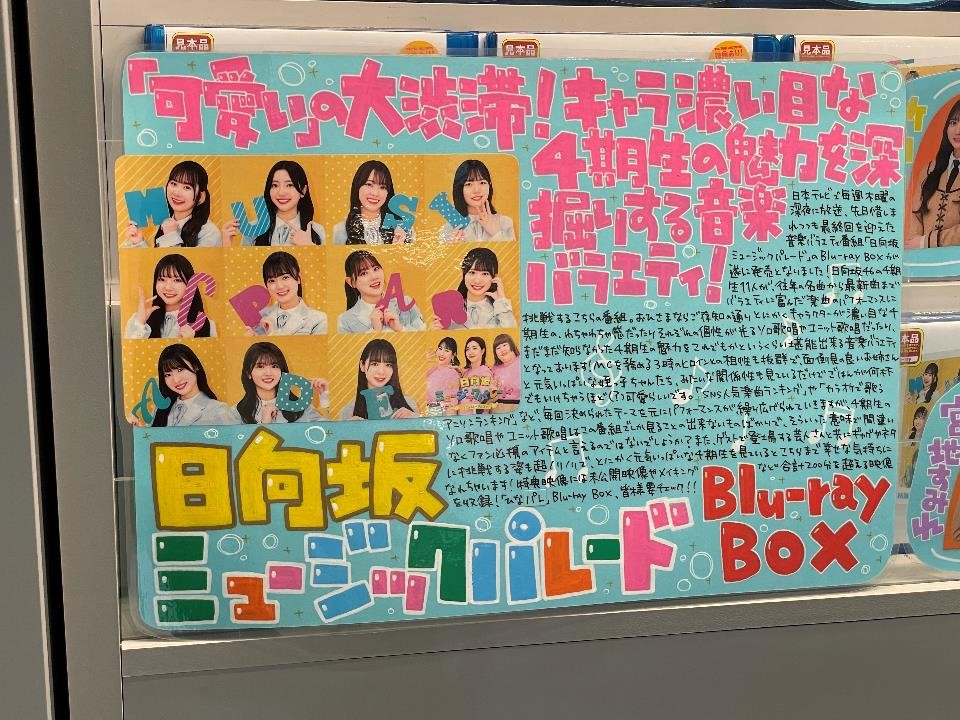 見本品
見本品
見本品
「可愛い」の大渋滞！キャラ濃い目な
4期生の魅力を深
掘りする音楽
バラエティ！
日本テレビで毎週木曜の
深夜に放送、先日惜しま
れつつも最終回を迎えた
音楽バラエティ番組「日向坂
ミュージックパレード」のBlu-ray BOXが
遂に発売となりました！日向坂46の4期
生11人が、往年の名曲から最新曲まで
バラエティに富んだ楽曲のパフォーマンスに
挑戦するこちらの番組。おひさまならご存知の通りとにかくキャラクターが濃い目な4
期生の、わちゃわちゃ感だったりそれぞれの個性が光るソロ歌唱やユニット歌唱だったり、
まだまだ知らなかった4期生の魅力をこれでもかというくらい堪能出来る音楽バラエティ
となっております！MCを務める3時のヒロインの相性も抜群で、面倒見の良いお姉さん
と元気いっぱいな妹っ子ちゃんたち、みたいな関係性を見ているだけでごはんが何杯
でもいけちゃうほど(？)可愛らしいです。「SNS人気楽曲ランキング」や「カラオケで歌う
アニソンランキング」など、毎回決められたテーマを元にパフォーマンスが繰り広げられていきますが、4期生の
ソロ歌唱やユニット歌唱はこの番組でしか見ることの出来ないものばかりで、そういった意味で間違い
なくファン必携のアイテムと言えるのではないでしょうか？また、ゲストで登場する芸人さんと共にギャグやネタ
に挑戦する姿も超レア！！とにかく元気いっぱいな4期生を見ているとこちらまで幸せな気持ちに
なれちゃいます！特典映像には未公開映像やメイキングなど合計200分を超える映像
を収録！「ひなパレ」Blu-ray Box、皆様要チェック！！
MUSI
CPAR
ADE
日向坂
ミュージックパレード
日向坂
ミュージックパレード
Blu-ray
BOX
見本品
宮地すみれ